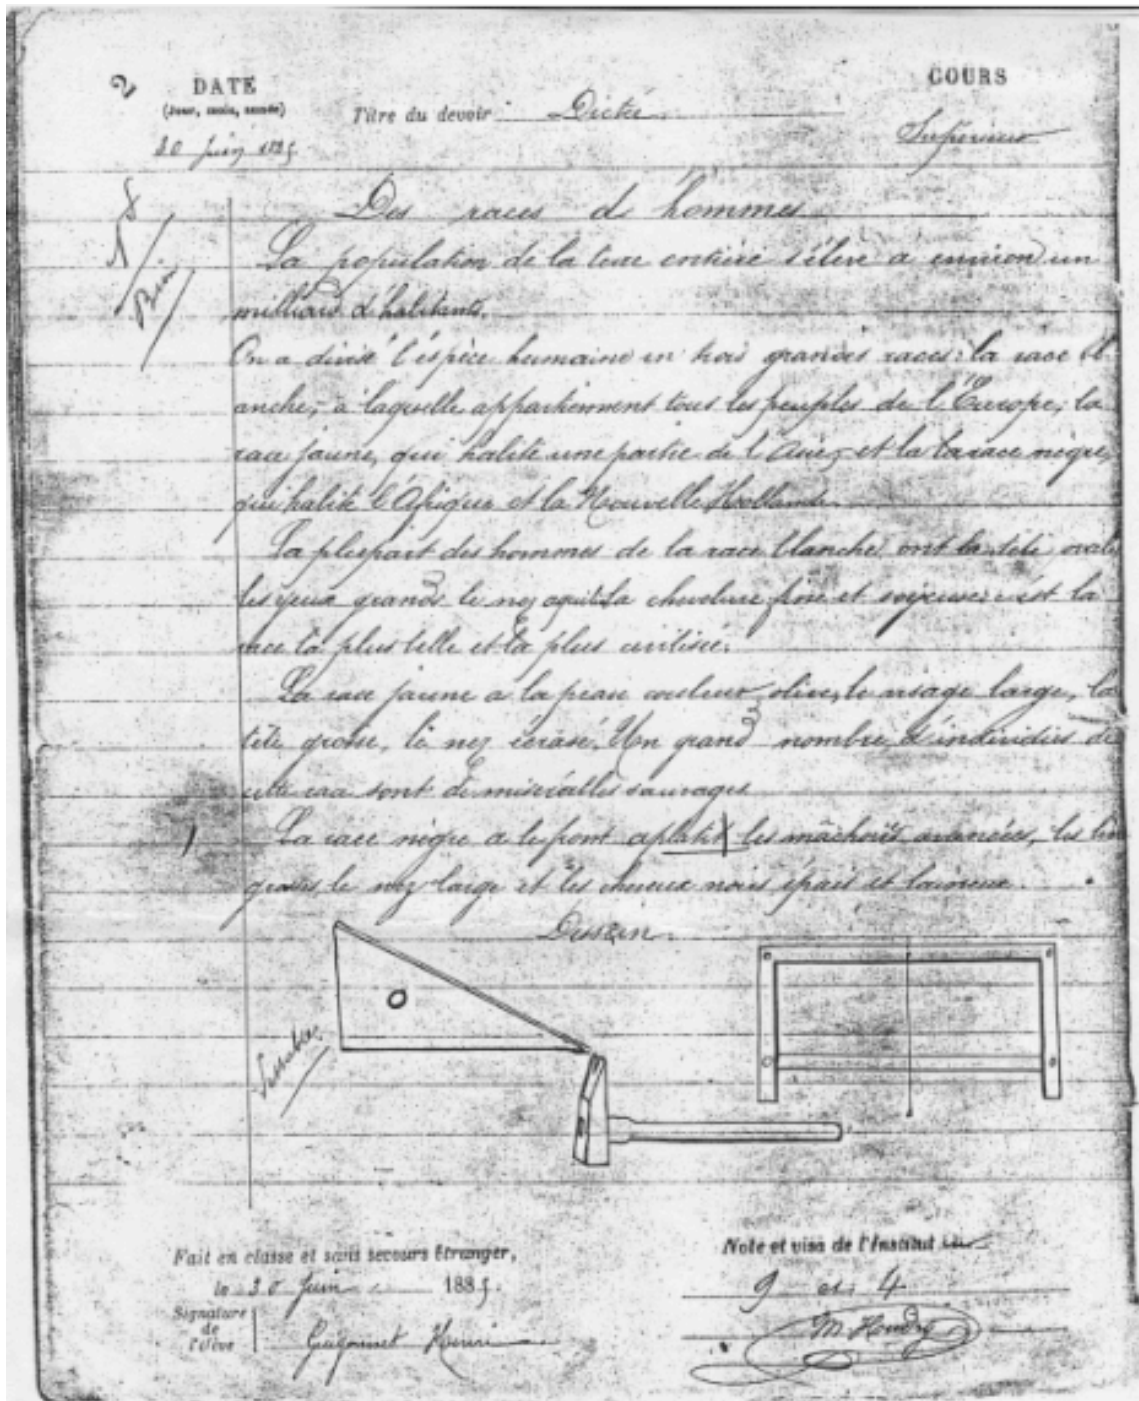 2
DATE
(Jour, mois, année)
30 Juin 1885
Titre du devoir Dictée
COURS
Supérieur
Des races d'hommes
8
Bien
La population de la terre entière s'élève a environ un
milliard d'habitants.
On a divisé l'éspèce humaine en trois grandes races: la race bl
anche, à laquelle appartiennent tous les peuples de l'Europe, la
race jaune, qui habite une partie de l'Asie, et la la race nègre,
qui habite l'Afrique et la Nouvelle Hollande.
La plupart des hommes de la race blanche ont la tête ovale
les yeux grands le nez la chevelure fine et soyeuse: c'est la
race la plus belle et la plus civilisée.
La race jaune a la peau couleur olive, le visage large, la
tête grosse, le nez écrasé. Un grand nombre d'individus de
cette race sont de misérables sauvages.
1 La race nègre a le front aplatit les mâchoires avancées, les
grosses, le nez large et les cheveux noirs épais et laineux.
Dessin.
Fait en classe et sans secours étranger,
le 30 Juin 1885.
Signature
de
l'élève
Henri
Note et visa de l'Institut
9 et 4